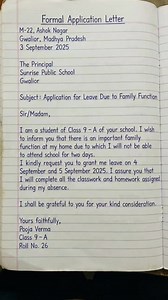 Formal Application Letter
M-22, Ashok Nagar
Gwalior, Madhya Pradesh
3 September 2025
The Principal
Sunrise Public School
Gwalior
Subject: Application for Leave Due to Family Function
Sir/Madam,
I am a student of Class 9-A of your school. I wish
to inform you that there is an important family
function at my home due to which I will not be able
to attend school for two days.
I kindly request you to grant me leave on 4
September and 5 September 2025. I assure you that
I will complete all the classwork and homework assigned
during my absence.
I shall be grateful to you for your kind consideration.
Yours faithfully,
Pooja Verma
Class 9-A
Roll No. 26